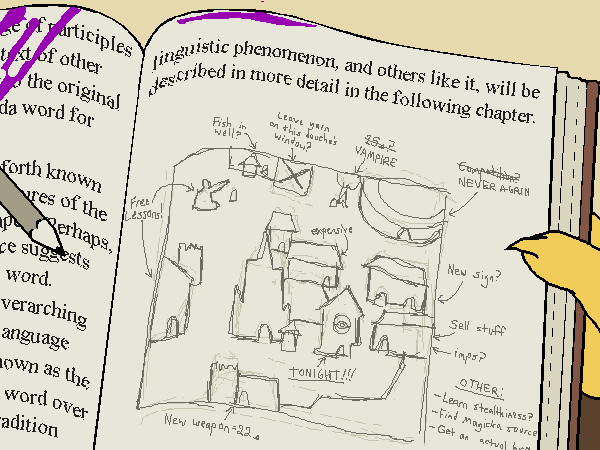 ge of participles
text of other
o the original
da word for
forth known
ures of the
Perhaps,
ce suggests
word.
verarching
anguage
nown as the
word over
radition
linguistic phenomenon, and others like it, will be
described in more detail in the following chapter.
Fish in
well?
Leave yarn
on this douches
window?
VAMPIRE
Competition?
NEVER AGAIN
Free
Lessons!
expensive
New sign?
Sell stuff
imps?
TONIGHT!!!
New weapon=22
OTHER:
-Learn stealthiness?
-Find Magicka source
-Get an actual